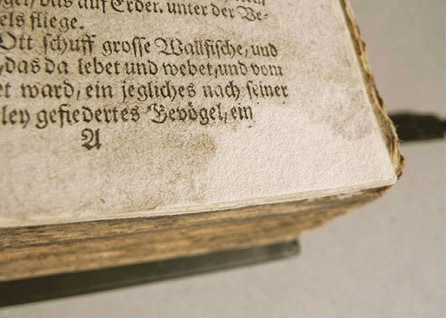 das auf Erden, unter der Ve-
els fliege.
Ott schuff grosse Wallfische, und
das da lebet und webet, und vom
et ward, ein jegliches nach seiner
ley gefiedertes Gevögel, ein
A